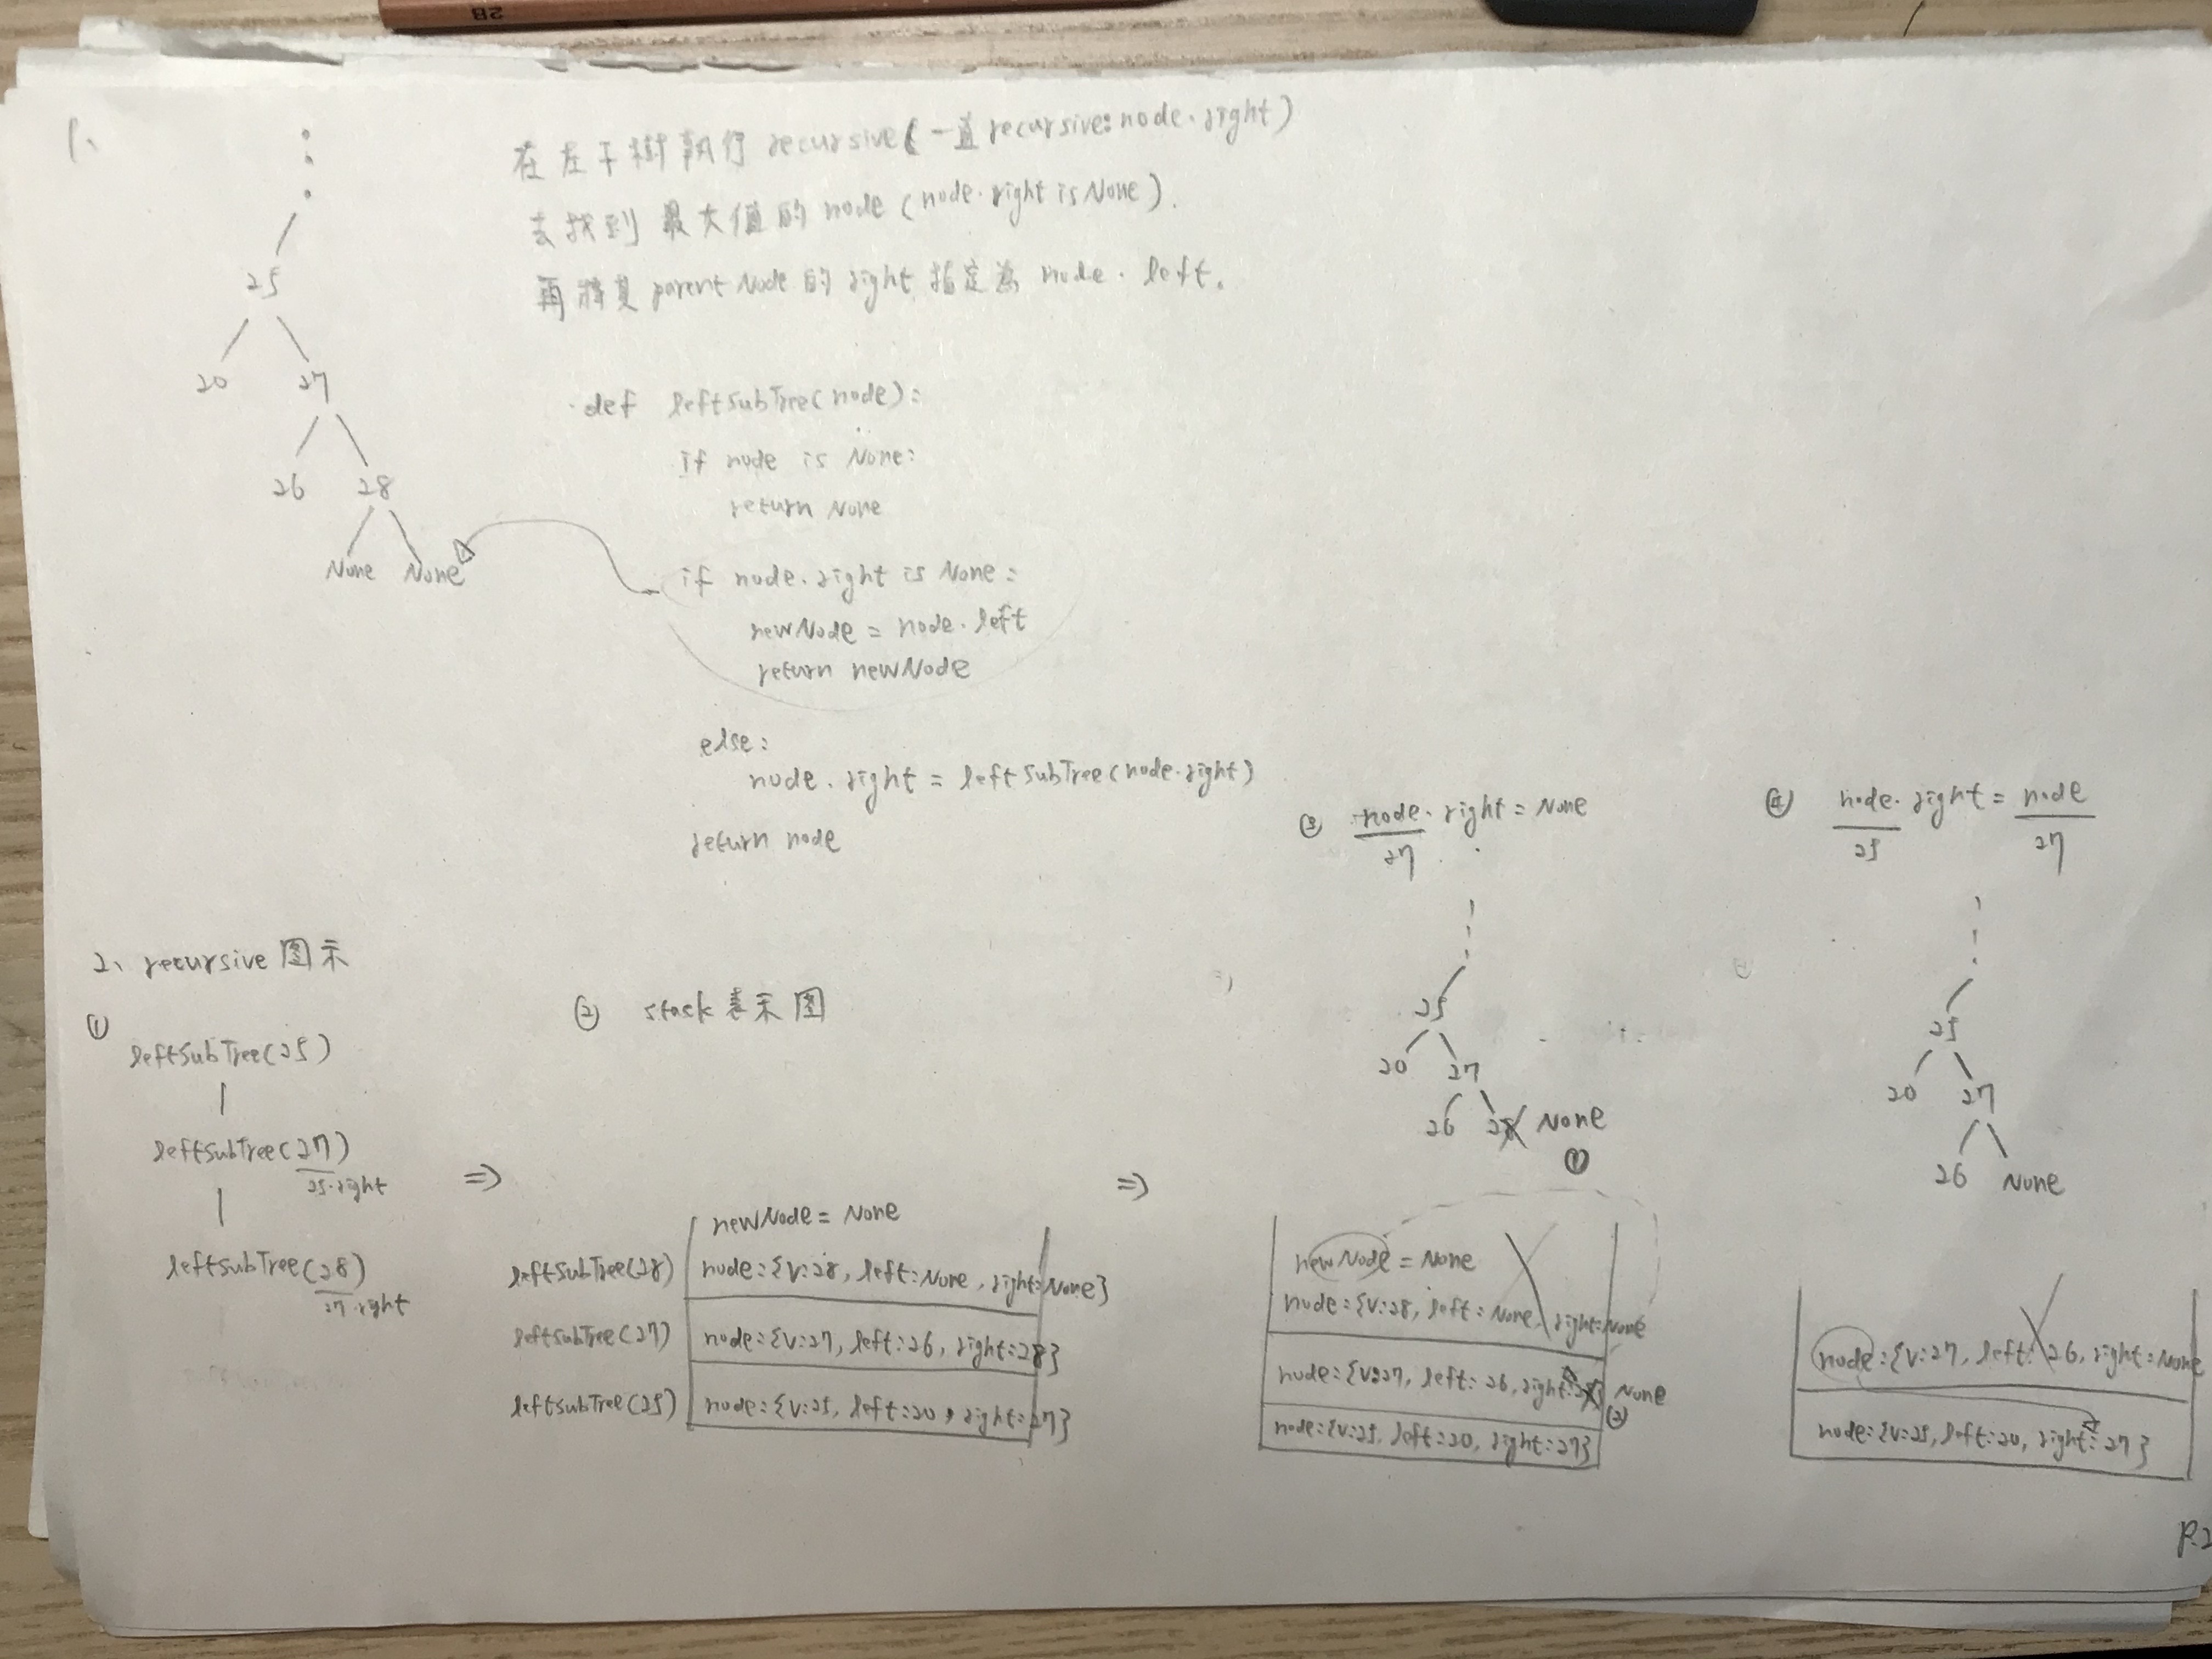 2B
1、
在左子樹執行 recursive(一直recursive:node.right)
去找到 最大值的 node (node.right is None).
再將其 parent Node 的 right 指定為 node.left。
25
20 27
26 28
None None
def leftSubTree(node):
if node is None:
return None
if node.right is None:
newNode = node.left
return newNode
else:
node.right = leftSubTree(node.right)
return node
2、recursive 图示
①
leftSubTree(25)
leftSubTree(27)
25.right
leftSubTree(28)
27.right
⇒
② stack 表示图
newNode = None
leftSubTree(28) node:{v:28, left:None, right:None}
leftSubTree(27) node:{v:27, left:26, right:28}
leftSubTree(25) node:{v:25, left:20, right:27}
⇒
③ node.right = None
27
25
20 27
26 28 None
①
newNode = None
node:{v:28, left:None, right:None
node:{v:27, left:26, right:28} None
②
node:{v:25, left:20, right:27}
④ node.right = node
25 27
25
20 27
26 None
node:{v:27, left:26, right:None
node:{v:25, left:20, right:27}
P.2